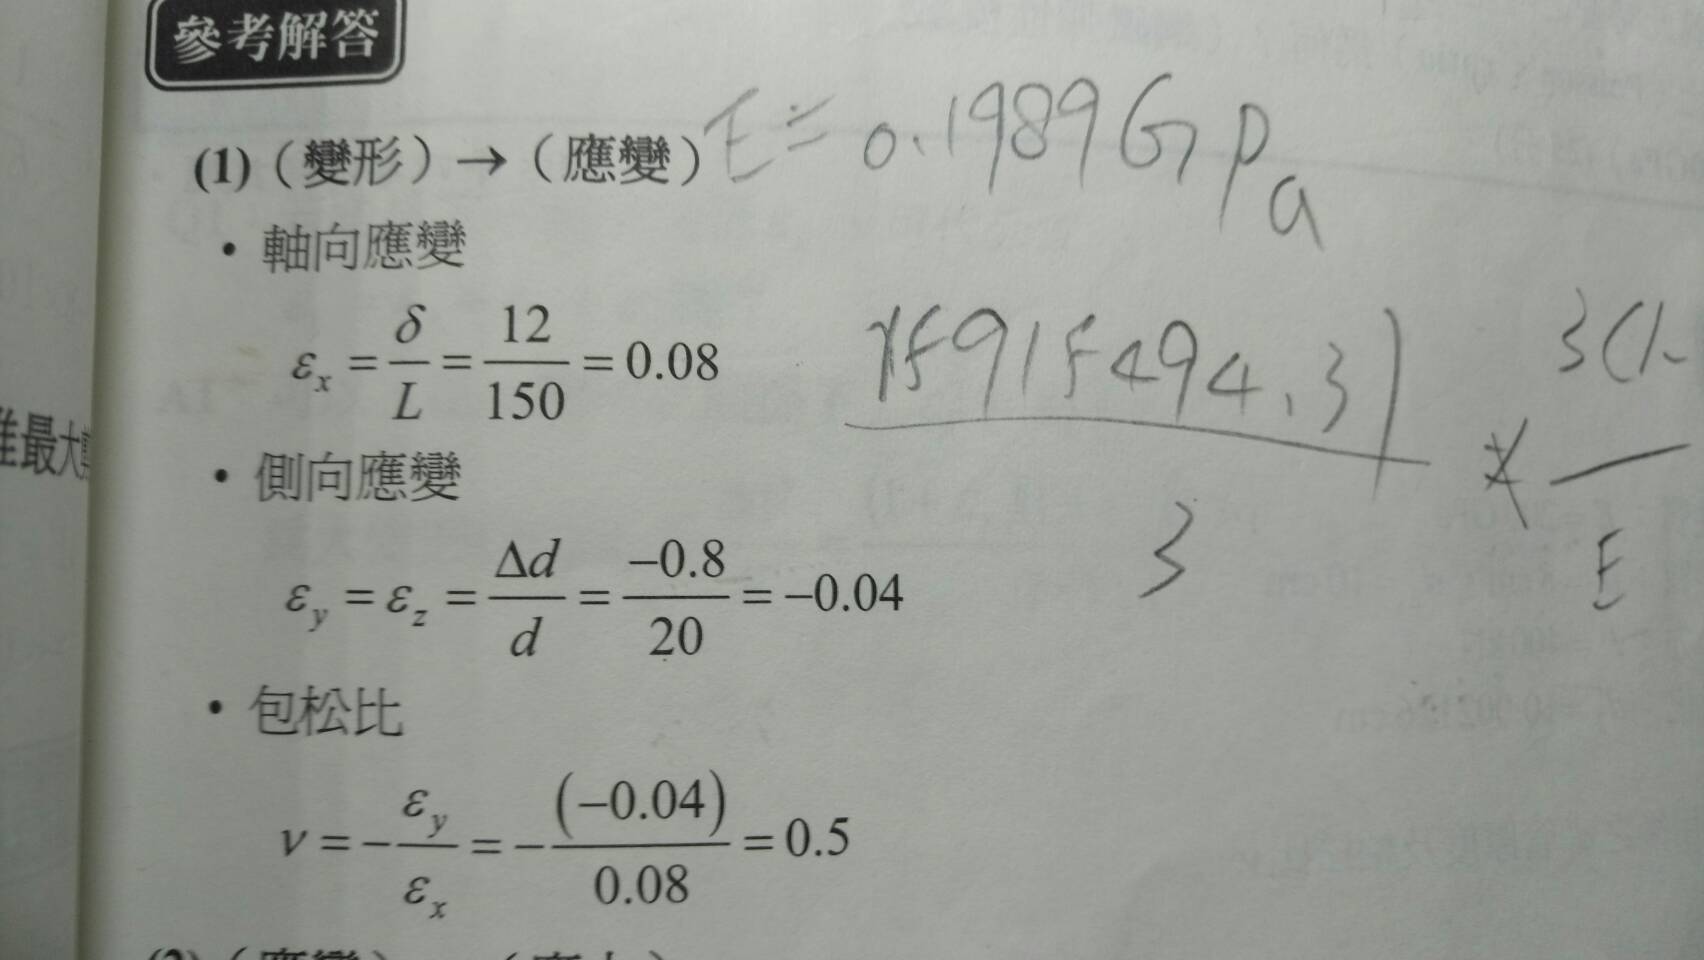 參考解答
(1)（變形）→（應變）E≒0.1989GPa
• 軸向應變
εx = δ/L = 12/150 = 0.08
15915494.3/3 * 3(1-/E
• 側向應變
εy = εz = Δd/d = −0.8/20 = −0.04
• 包松比
ν = −εy/εx = −(−0.04)/0.08 = 0.5
最大